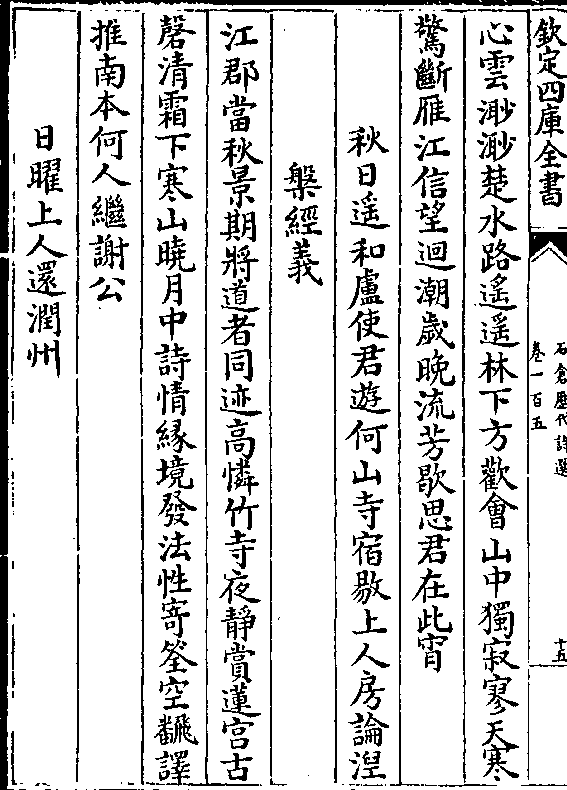 欽定四庫全書
石倉歷代詩選
卷一百五
十五
心雲渺渺楚水路遥遥林下方歡會山中獨寂寥天寒
驚斷雁江信望迴潮歲晚流芳歇思君在此宵
秋日遥和盧使君遊何山寺宿敭上人房論湼
槃經義
江郡當秋景期將道者同迹高憐竹寺夜靜賞蓮宫古
磬清霜下寒山曉月中詩情緣境發法性寄筌空飜譯
推南本何人繼謝公
日曜上人還潤州